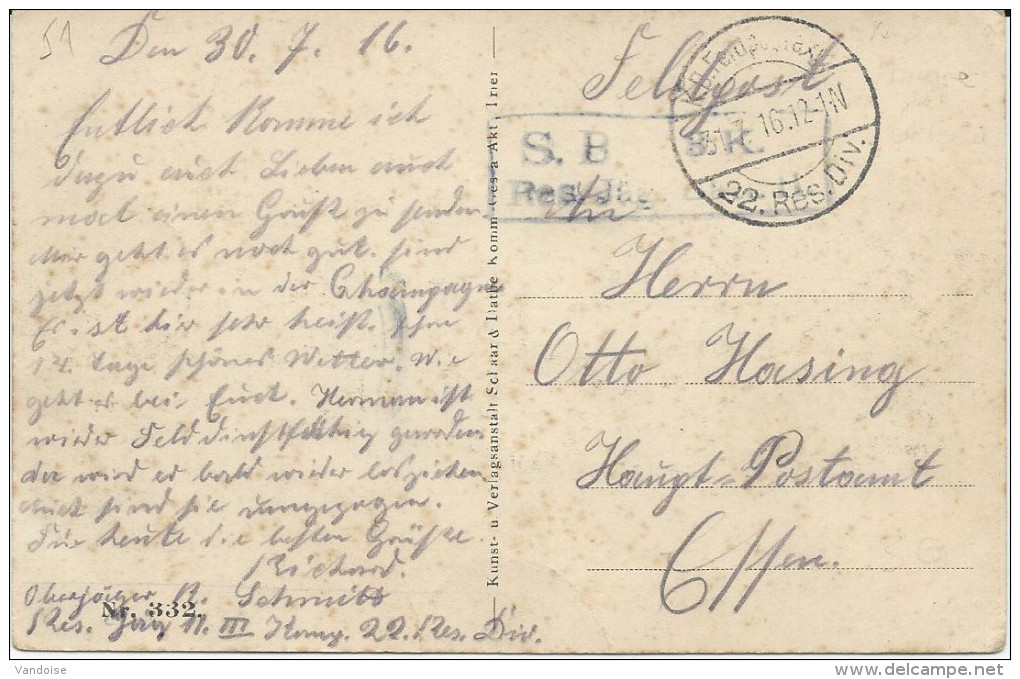 51
Den 30. 7. 16.
Entlich komme ich
dazu euch Lieben auch
mal einen Gruß zu senden
Mir geht es noch gut. sind
jetzt wieder in der Champagne
Es ist hir sehr heiß. schon
14 Tage schönes Wetter. Wie
geht es bei Euch. Hermann ist
wieder Felddinstfähig geworden
da wird er bald wieder losziehen
auch sind sie umgezogen.
Für heute die besten Grüße
Richard.
Oberjäger R. Schmits
Nr. 332.
Res. Jäg. 11. III Komp. 22. Res. Div.
Kunst- u Verlagsanstalt Schaar & Dathe Komm Ges a Akt, Trier
Feldpost
31.7.16.12-1N
22. Res. Div.
S. B
Res. Jäg.
An
Herrn
Otto Hasing
Haupt-Postamt
Essen.
Vandoise
www.delcampe.net